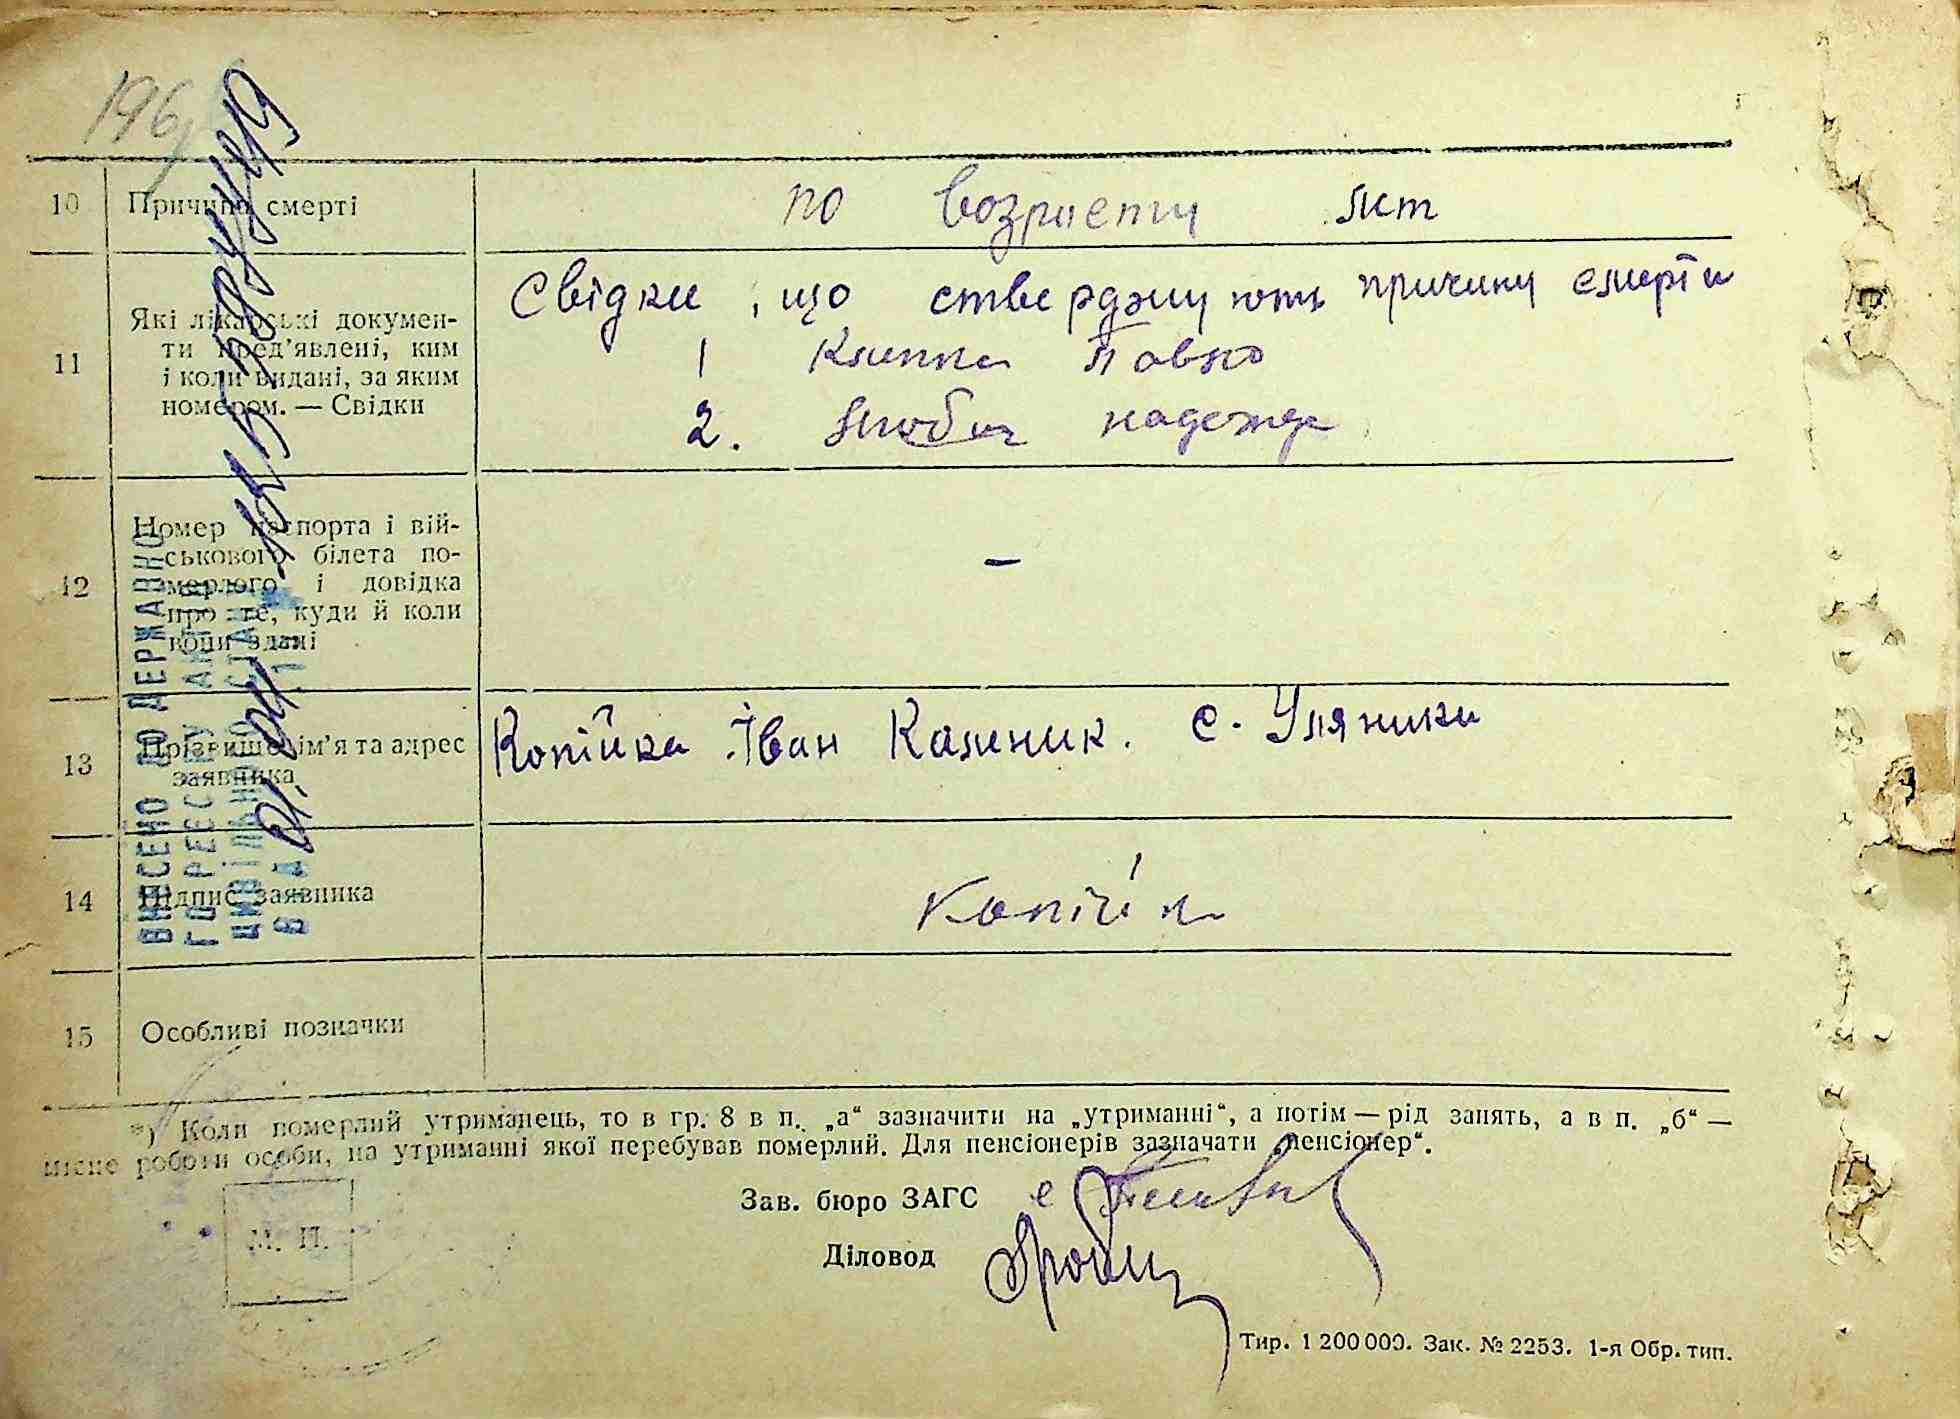 196
10 Причина смерті по возрасту лет
11 Які лікарські докумен-
ти пред’явлені, ким
і коли видані, за яким
номером. — Свідки
Свідки, що стверджують причину смерти
1 Павло
2. надежда
12 Номер паспорта і вій-
ськового білета по-
мерлого і довідка
про те, куди й коли
вони здані
–
13 Прізвище ім’я та адрес
заявника
Копійка Іван Калиник. с. Уляники
14 Підпис заявника
15 Особливі позначки
ВНЕСЕНО ДО ДЕРЖАВНО
ГО РЕЄСТРУ АКТІВ
ЦИВІЛЬНОГО СТАНУ
*) Коли померлий утриманець, то в гр. 8 в п. „а“ зазначити на „утриманні“, а потім — рід занять, а в п. „б“ —
місце роботи особи, на утриманні якої перебував померлий. Для пенсіонерів зазначати „пенсіонер“.
Зав. бюро ЗАГС
Діловод
М. П.
Тир. 1 200 000. Зак. № 2253. 1-я Обр. тип.